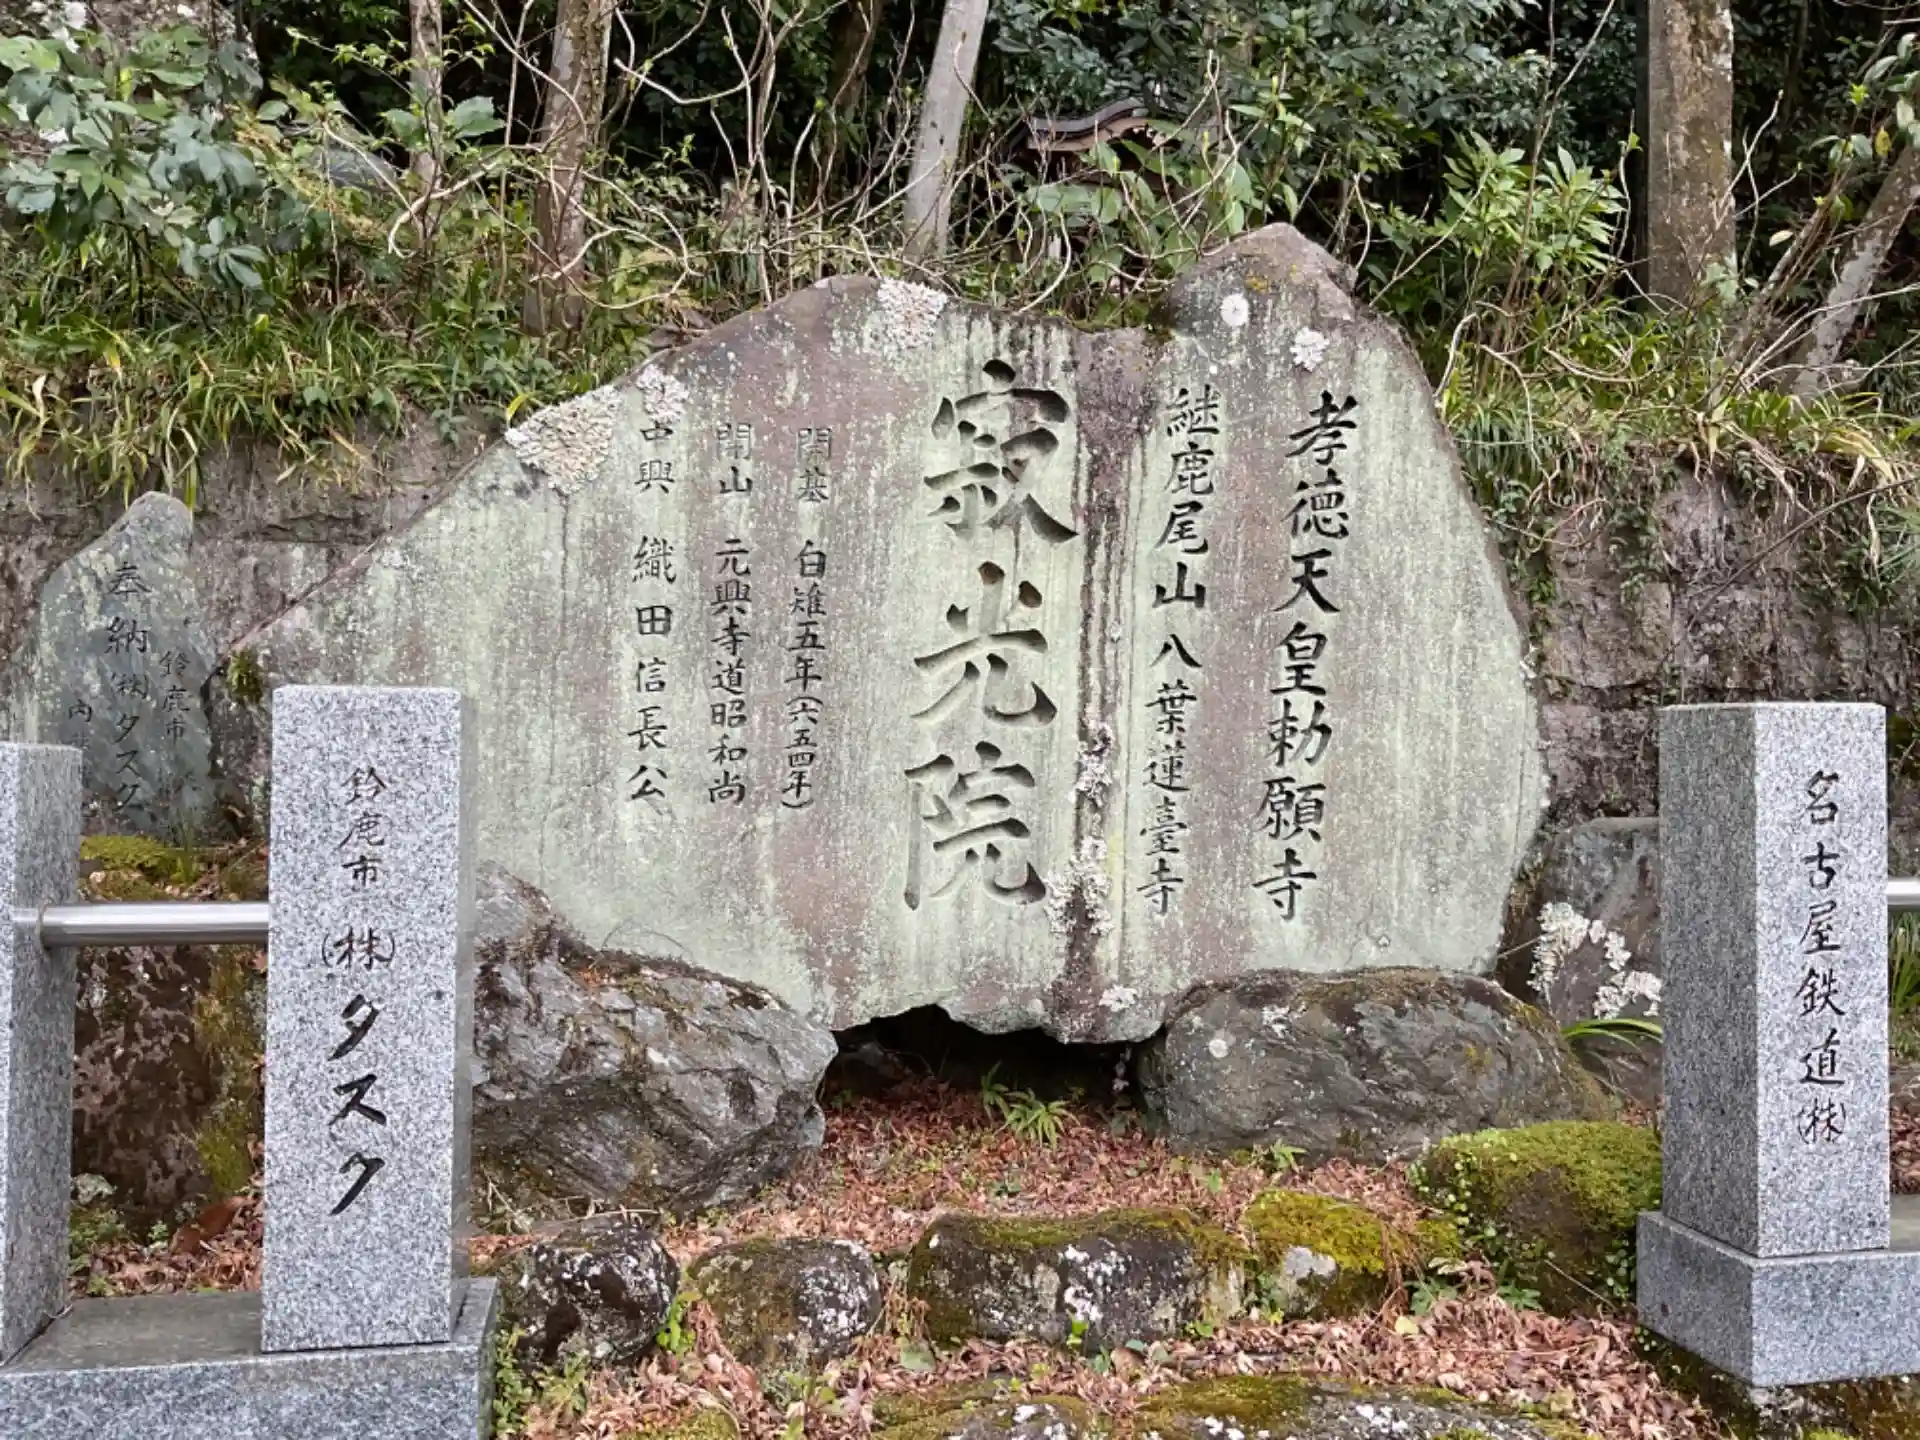 孝徳天皇勅願寺
継鹿尾山 八葉蓮臺寺
寂光院
開基 白雉五年(六五四年)
開山 元興寺道昭和尚
中興 織田信長公
名古屋鉄道(株)
鈴鹿市(株)タスク
奉納 鈴鹿市
(株)タスク
内